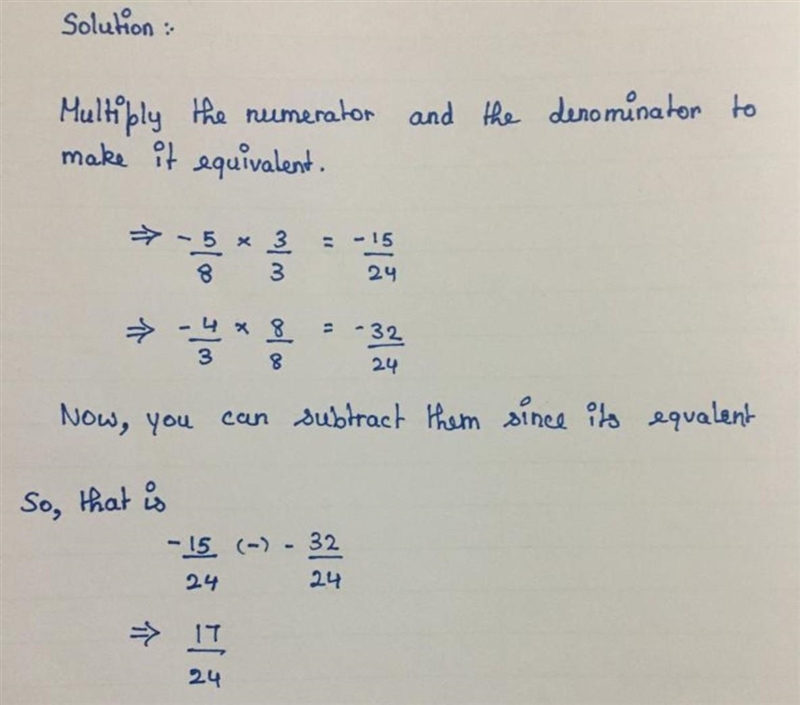 Solution :-
Multiply the numerator and the denominator to
make it equivalent.
⇒ -5/8 × 3/3 = -15/24
⇒ -4/3 × 8/8 = -32/24
Now, you can subtract them since its equvalent
So, that is
-15/24 (-) - 32/24
⇒ 17/24